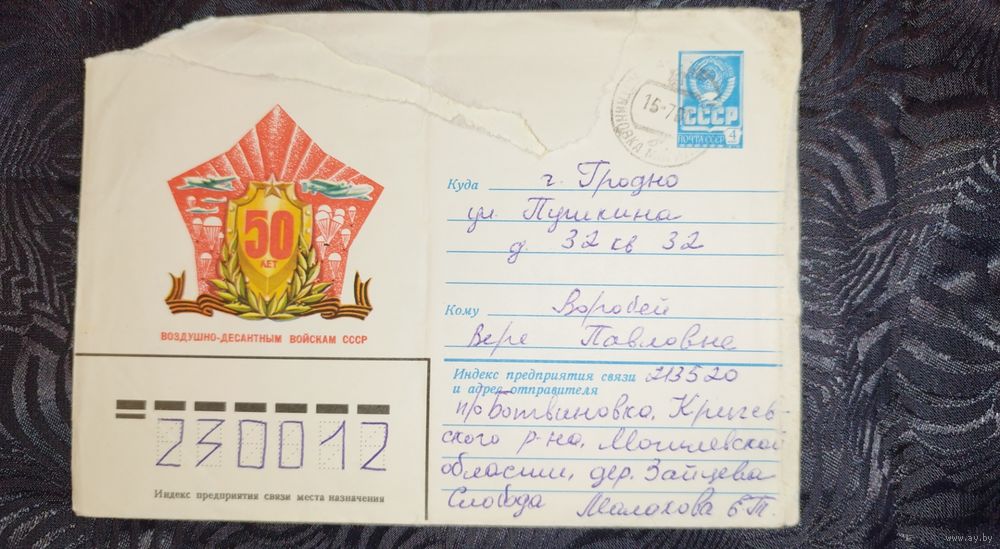 50
ЛЕТ
ВОЗДУШНО-ДЕСАНТНЫМ ВОЙСКАМ СССР
СССР
ПОЧТА СССР 4
15-7
Куда г. Гродно
ул. Пушкина
д. 32 кв 32
Кому Воробей
Вере Павловне
Индекс предприятия связи 213520
и адрес отправителя
п/о Ботвиновка, Кричев-
ского р-на, Могилевской
области, дер. Зайцева
Слобода Малахова
230012
Индекс предприятия связи места назначения
www.ay.by